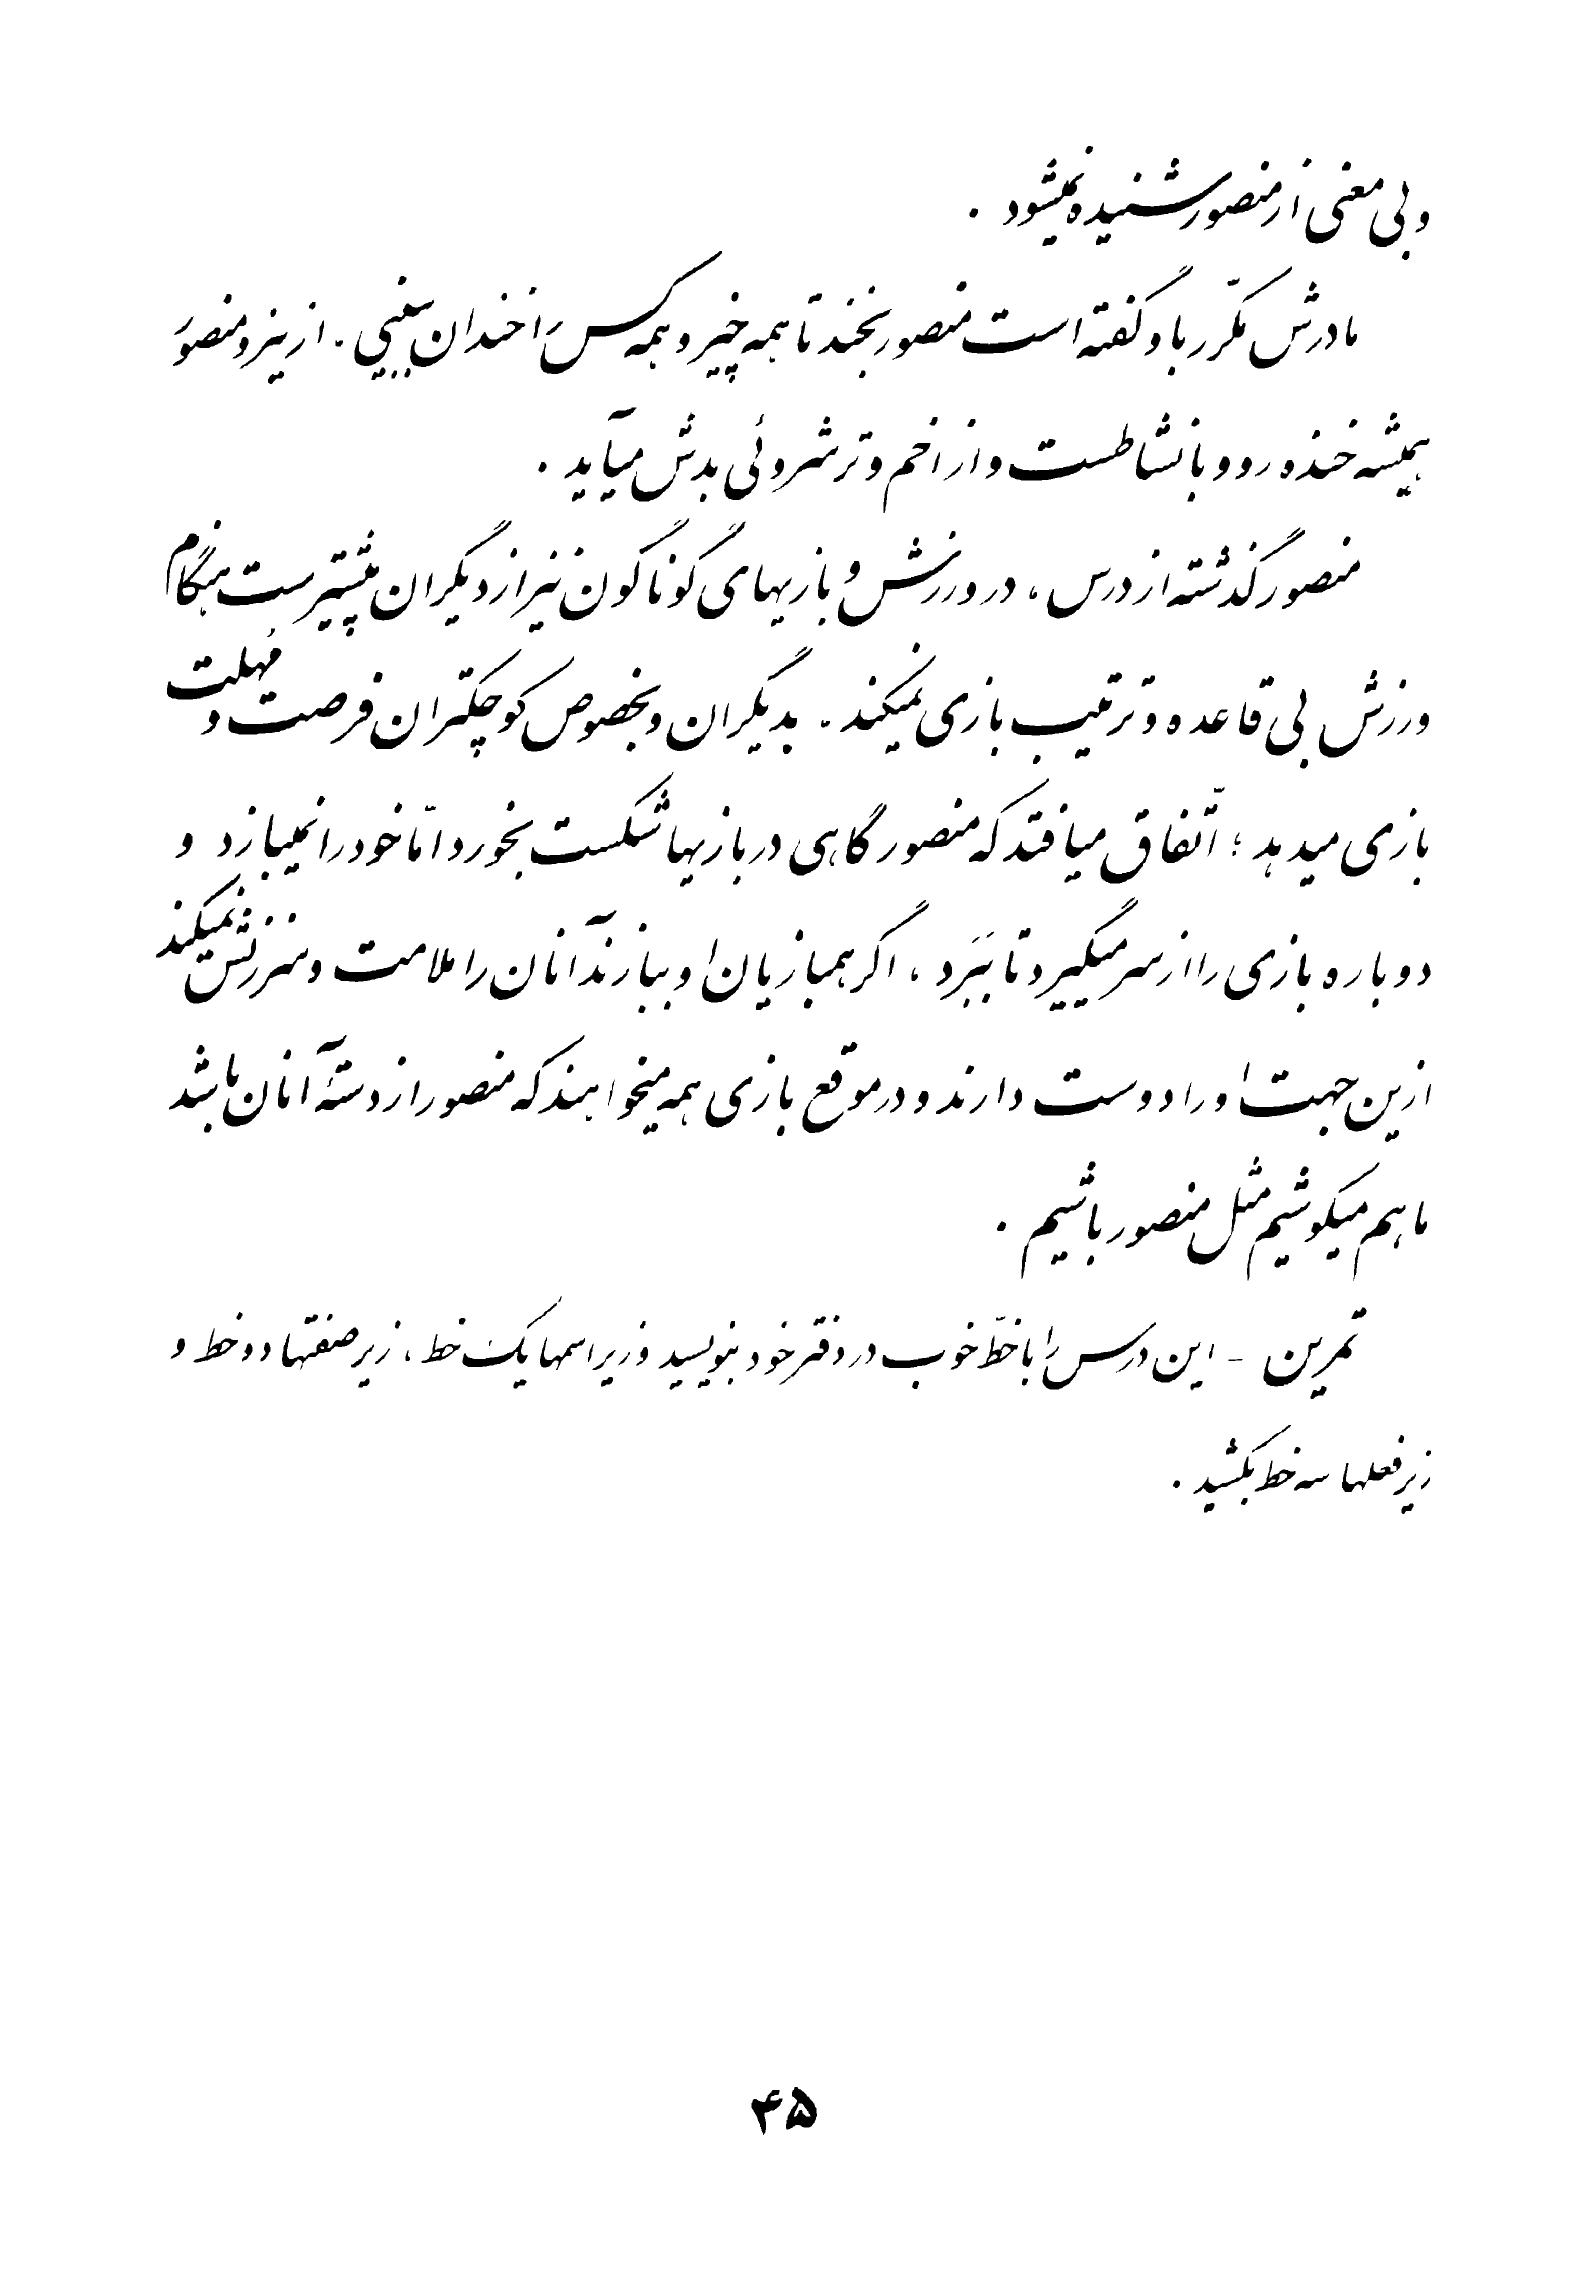 و بی معنی از منصور شنیده نمیشود .
مادرش مکرّر باو گفته است منصور بخند تا همه چیز و همه کس را خندان ببینی . ازینرو منصور
همیشه خنده رو و با نشاطست و از اخم و ترشروئی بدش میآید .
منصور گذشته از درس ، در ورزش و بازیهای گوناگون نیز از دیگران پیشترست هنگام
ورزش بی قاعده و ترتیب بازی نمیکند . بدیگران و بخصوص کوچکتران فرصت و مُهلت
بازی میدهد ؛ اتّفاق میافتد که منصور گاهی در بازیها شکست بخورد امّا خود را نمیبازد و
دوباره بازی را از سر میگیرد تا ببَرَد ، اگر همبازیان او ببازند آنان را ملامت و سرزنش نمیکند
ازین جهت او را دوست دارند و در موقع بازی همه میخواهند که منصور از دستهٔ آنان باشد
ما هم میکوشیم مثل منصور باشیم .
تمرین - این درس را با خطّ خوب در دفتر خود بنویسید و زیر اسمها یک خط ، زیر صفتها دو خط و
زیر فعلها سه خط بکشید .
۴۵